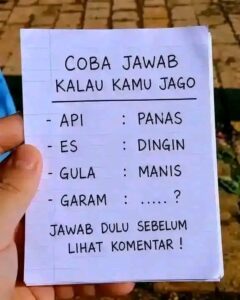 COBA JAWAB
KALAU KAMU JAGO
- API : PANAS
- ES : DINGIN
- GULA : MANIS
- GARAM : ..... ?
JAWAB DULU SEBELUM
LIHAT KOMENTAR !